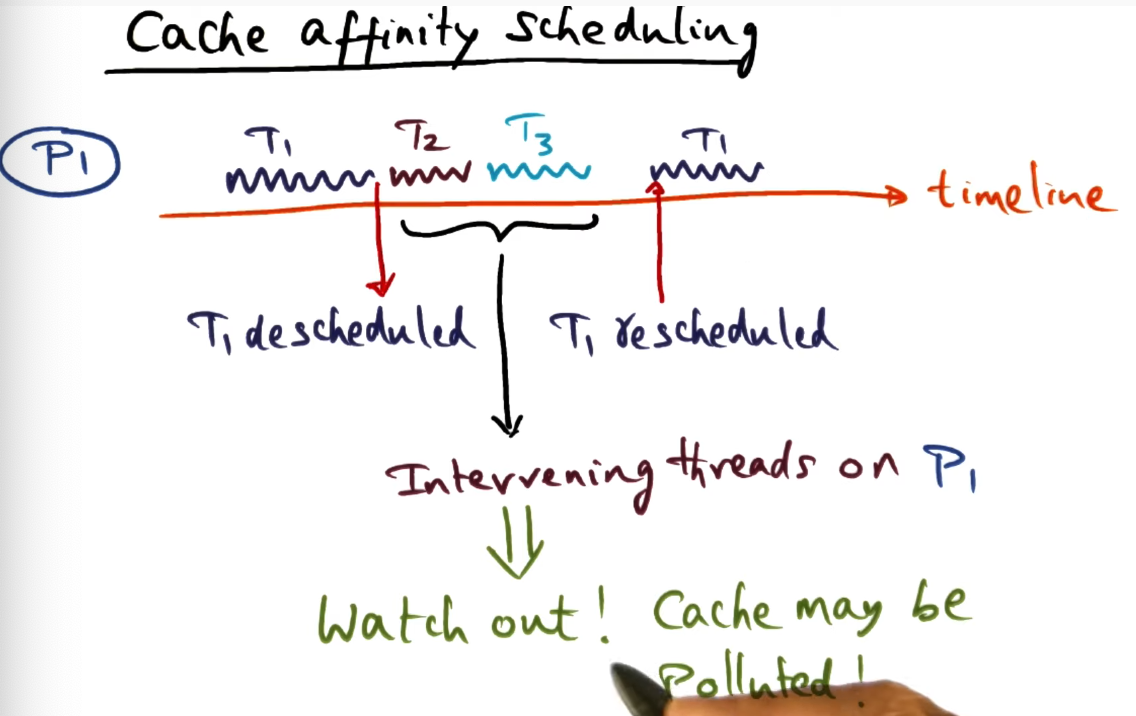 Cache affinity scheduling
P1
T1 T2 T3 T1
timeline
T1 descheduled
T1 rescheduled
Intervening threads on P1
Watch out! Cache may be
Polluted!